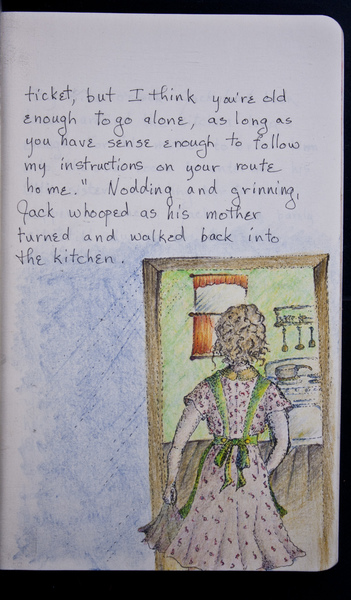 ticket, but I think you're old
enough to go alone, as long as
you have sense enough to follow
my instructions on your route
home." Nodding and grinning,
Jack whooped as his mother
turned and walked back into
the kitchen.